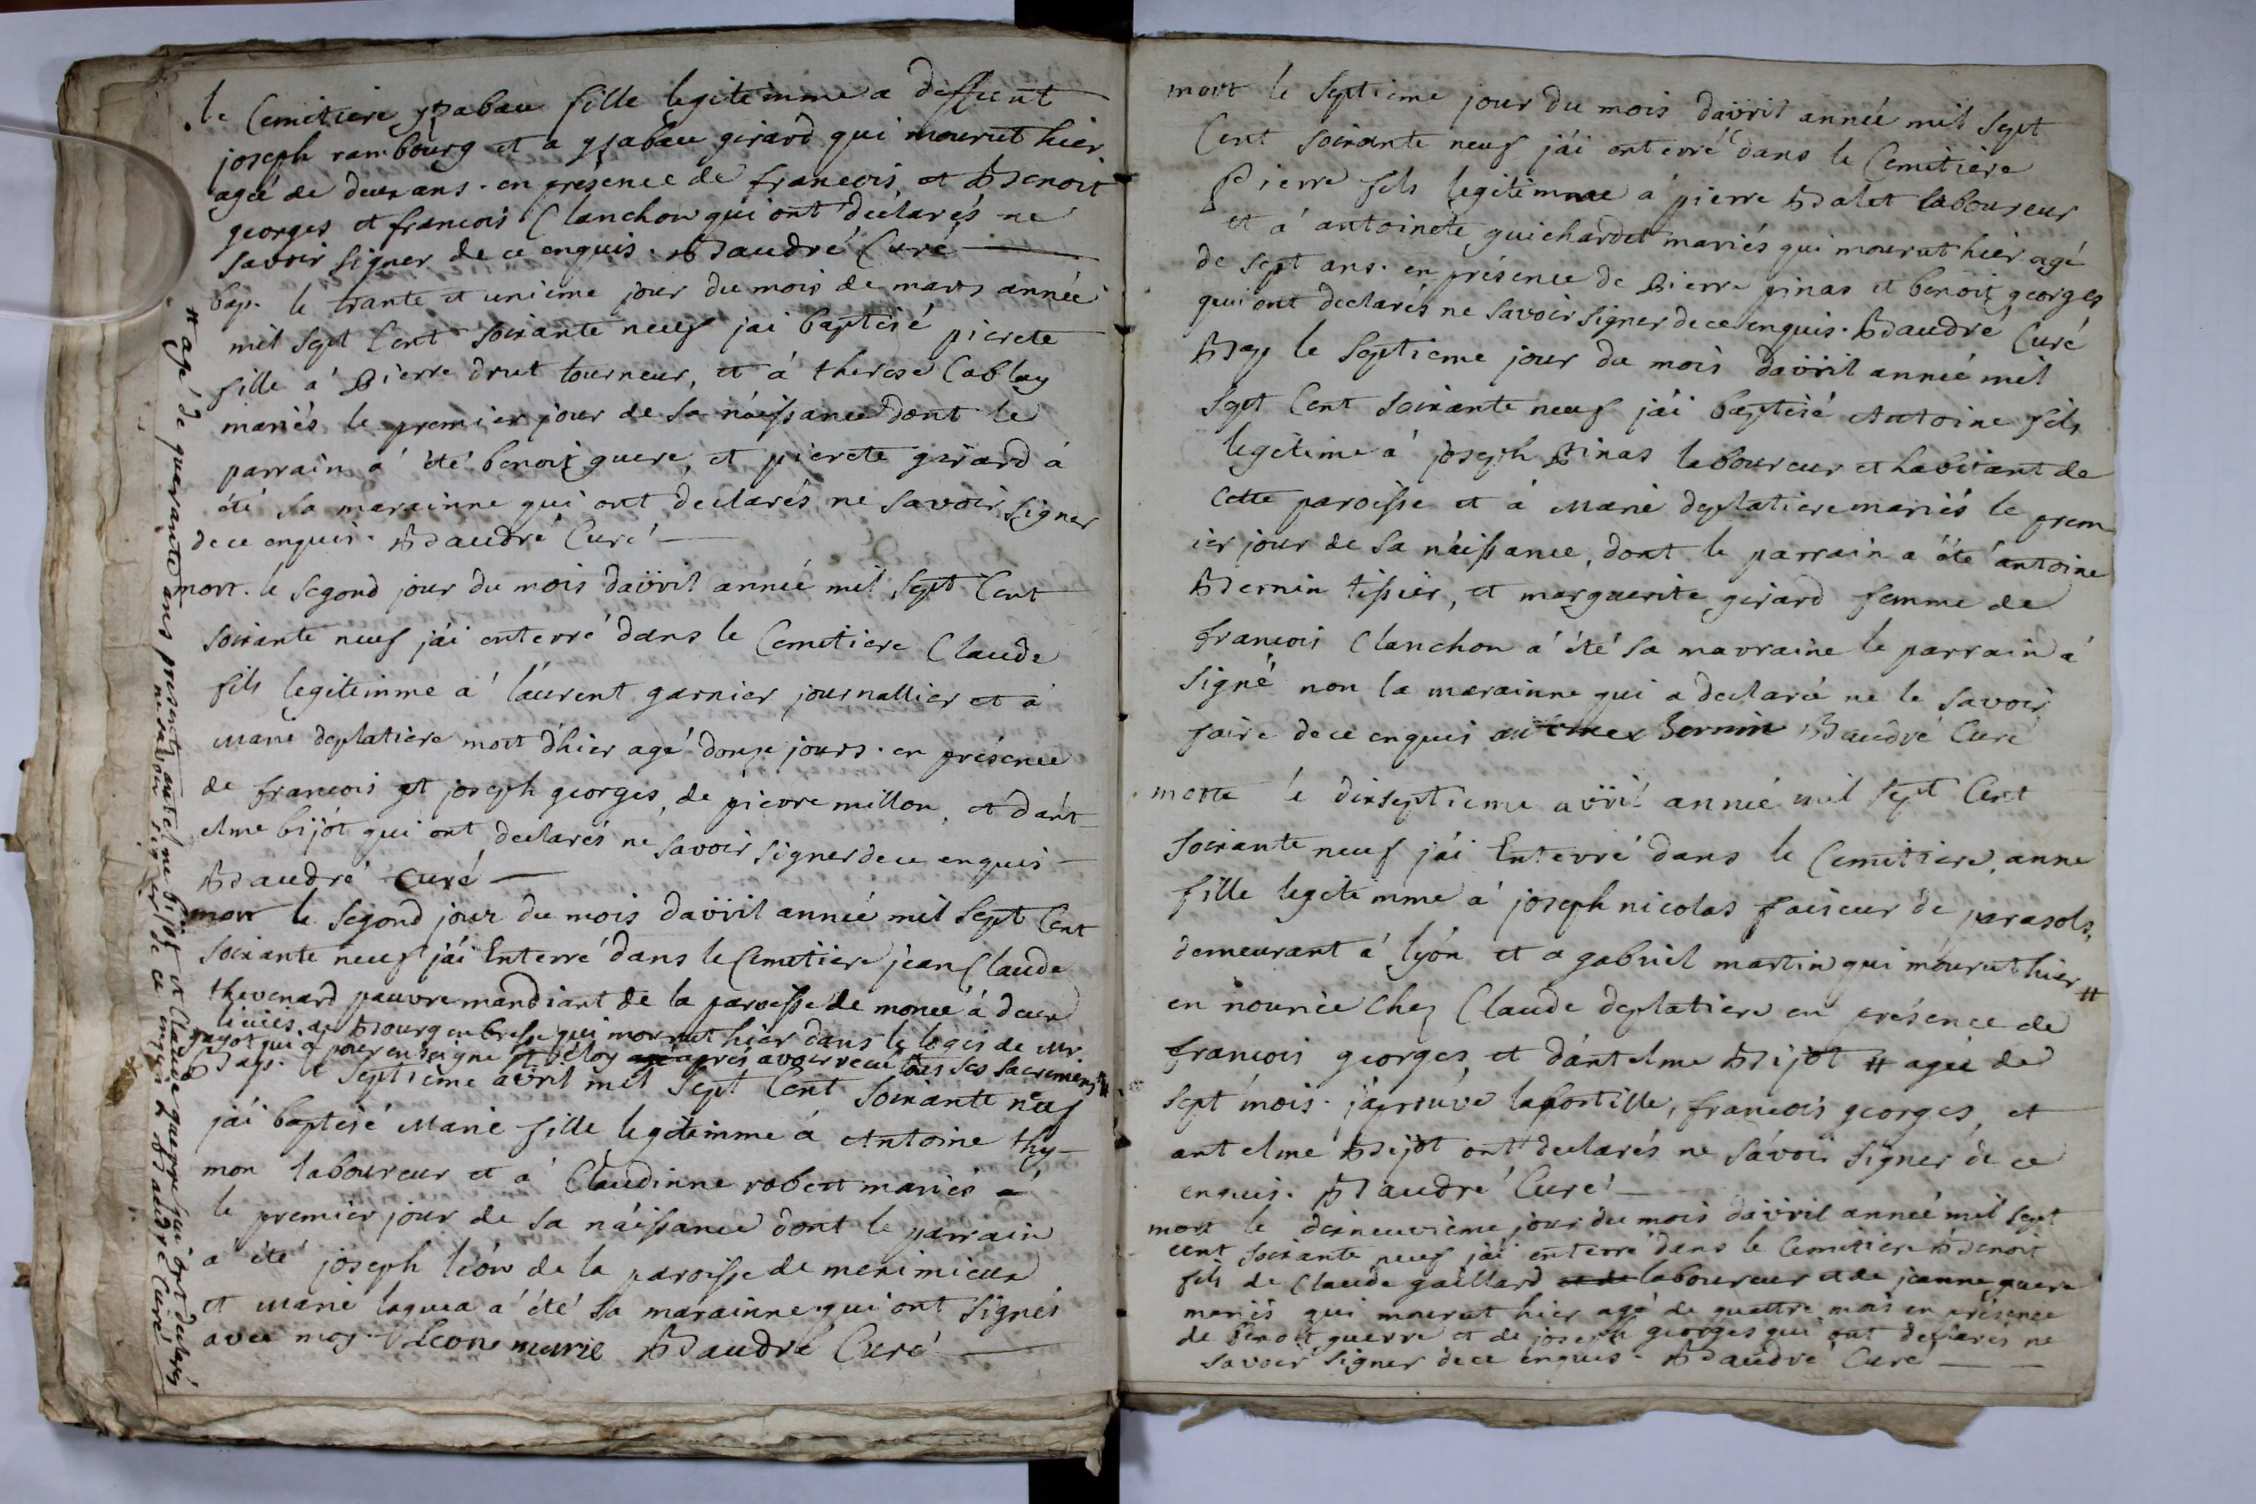 le Cemitiere ysabau fille legitemme a deffeunt
joseph rambourg et a ysabau girard qui mourut hier
agée de deux ans. en présence de francois, et Benoit
georges et francois Clanchon qui ont déclarés ne
savoir signer de ce enquis. Baudré Curé
bap. le trante et unième jour du mois de mars année
mil sept Cent soixante neuf jai baptisé pierete
fille a' Pierre drut tourneur, et á therese Cablay
mariés le premier jour de sa náissance dont le
parrain á été benoit guere, et pierete girard á
été sa marainne qui ont declarés ne savoir signer
de ce enquis. Baudré Curé
mort. le segond jour du mois davril année mil sept Cent
soixante neuf jái enterré dans le Cemitiere Claude
fils legitemme a' láurent garnier journallier et a
Marie deplatiere mort d'hier agé douze jours. en présence
de francois et joseph georges, de piérre millon, et dant
elme bijót qui ont declarés ne savoir signer de ce enquis
Baudré Curé
mort le segond jour du mois davril année mil sept Cent
soixante neuf jái Enterré dans le Cemitiere jean Claude
thevenard pauvre mandiant de la paroisse de moncé á deux
liuies de Bourg en bresse qui mourut hier dans le logis de Mr
guyot qui a pour enseigne st éloy agé apres avoir recu tous ses sacremens #
Bap. le septieme avril mil sept Cent soixante neuf
jái baptisé Marie fille legitemme á Antoine thy-
mon laboureur et á Claudinne robert mariés á
le premier jour de sa náissance dont le parrain
a été joseph león de la paroisse de meximieux
et Marie laguea á été sa marainne qui ont signés
avec moy. Leone murie Baudré Curé
# agé de quarante ans presents antelme bijót et Claude guerre qui ont declarés
ne savoir signer de ce enquis Baudré Curé
mort le septieme jour du mois davril année mil sept
Cent soixante neuf jái enterré dans le Cemitiere
Pierre fils legitemme á pierre Balet laboureur
et á antoinete guichardet mariés qui mourut hier agé
de sept ans. en présence de Pierre pinas et benoit georges
qui ont declarés ne savoir signer de ce enquis. Baudré Curé
Bap le septieme jour du mois davril année mil
sept Cent soixante neuf jái baptisé Antoine fils
legitime á joseph Pinas laboureur et habitant de
cette paroisse et á Marie deplatiere mariés le prem
ier jour de sa náissance, dont le parrain a été antoine
Bernin tissier, et marguerite girard femme de
francois Clanchon á été sa mavraine le parrain á
signé non la marainne qui a declaré ne le savoir
faire de ce enquis Bernin Baudré Curé
morte le dixseptieme avril année mil sept Cent
soixante neuf jái Enterré dans le Cemitiere. anne
fille legitemme á joseph nicolas faiseur de parasols,
demeurant á lyón et a gabriel martin qui móurut hier #
en nourice chez Claude deplatiere en présence de
francois georges, et dántelme Bijót # agée de
sept mois. jáprouve lapostille, francois georges, et
antelme Bijót ont declarés ne sávoir signer de ce
enquis. Baudré Curé
mort le dixneuvième jour du mois davril année mil sept
cent soixante neuf jái enterré dans le Cemitiere Benoit
fils de Claude gaillard et de laboureur et de jeanne guere
mariés qui mourut hier agé de quattre mois en présence
de benoit guerre et de joseph georges qui ont declarés ne
savoir signer de ce enquis. Baudré Curé